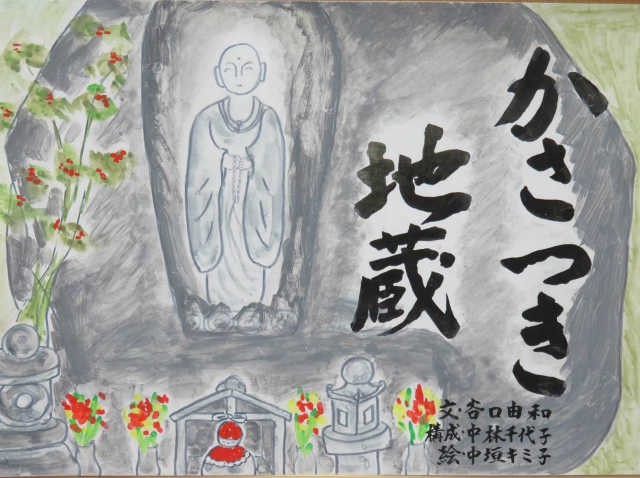 かさつき
地蔵
文・谷口由和
構成・中林千代子
絵・中垣キミ子